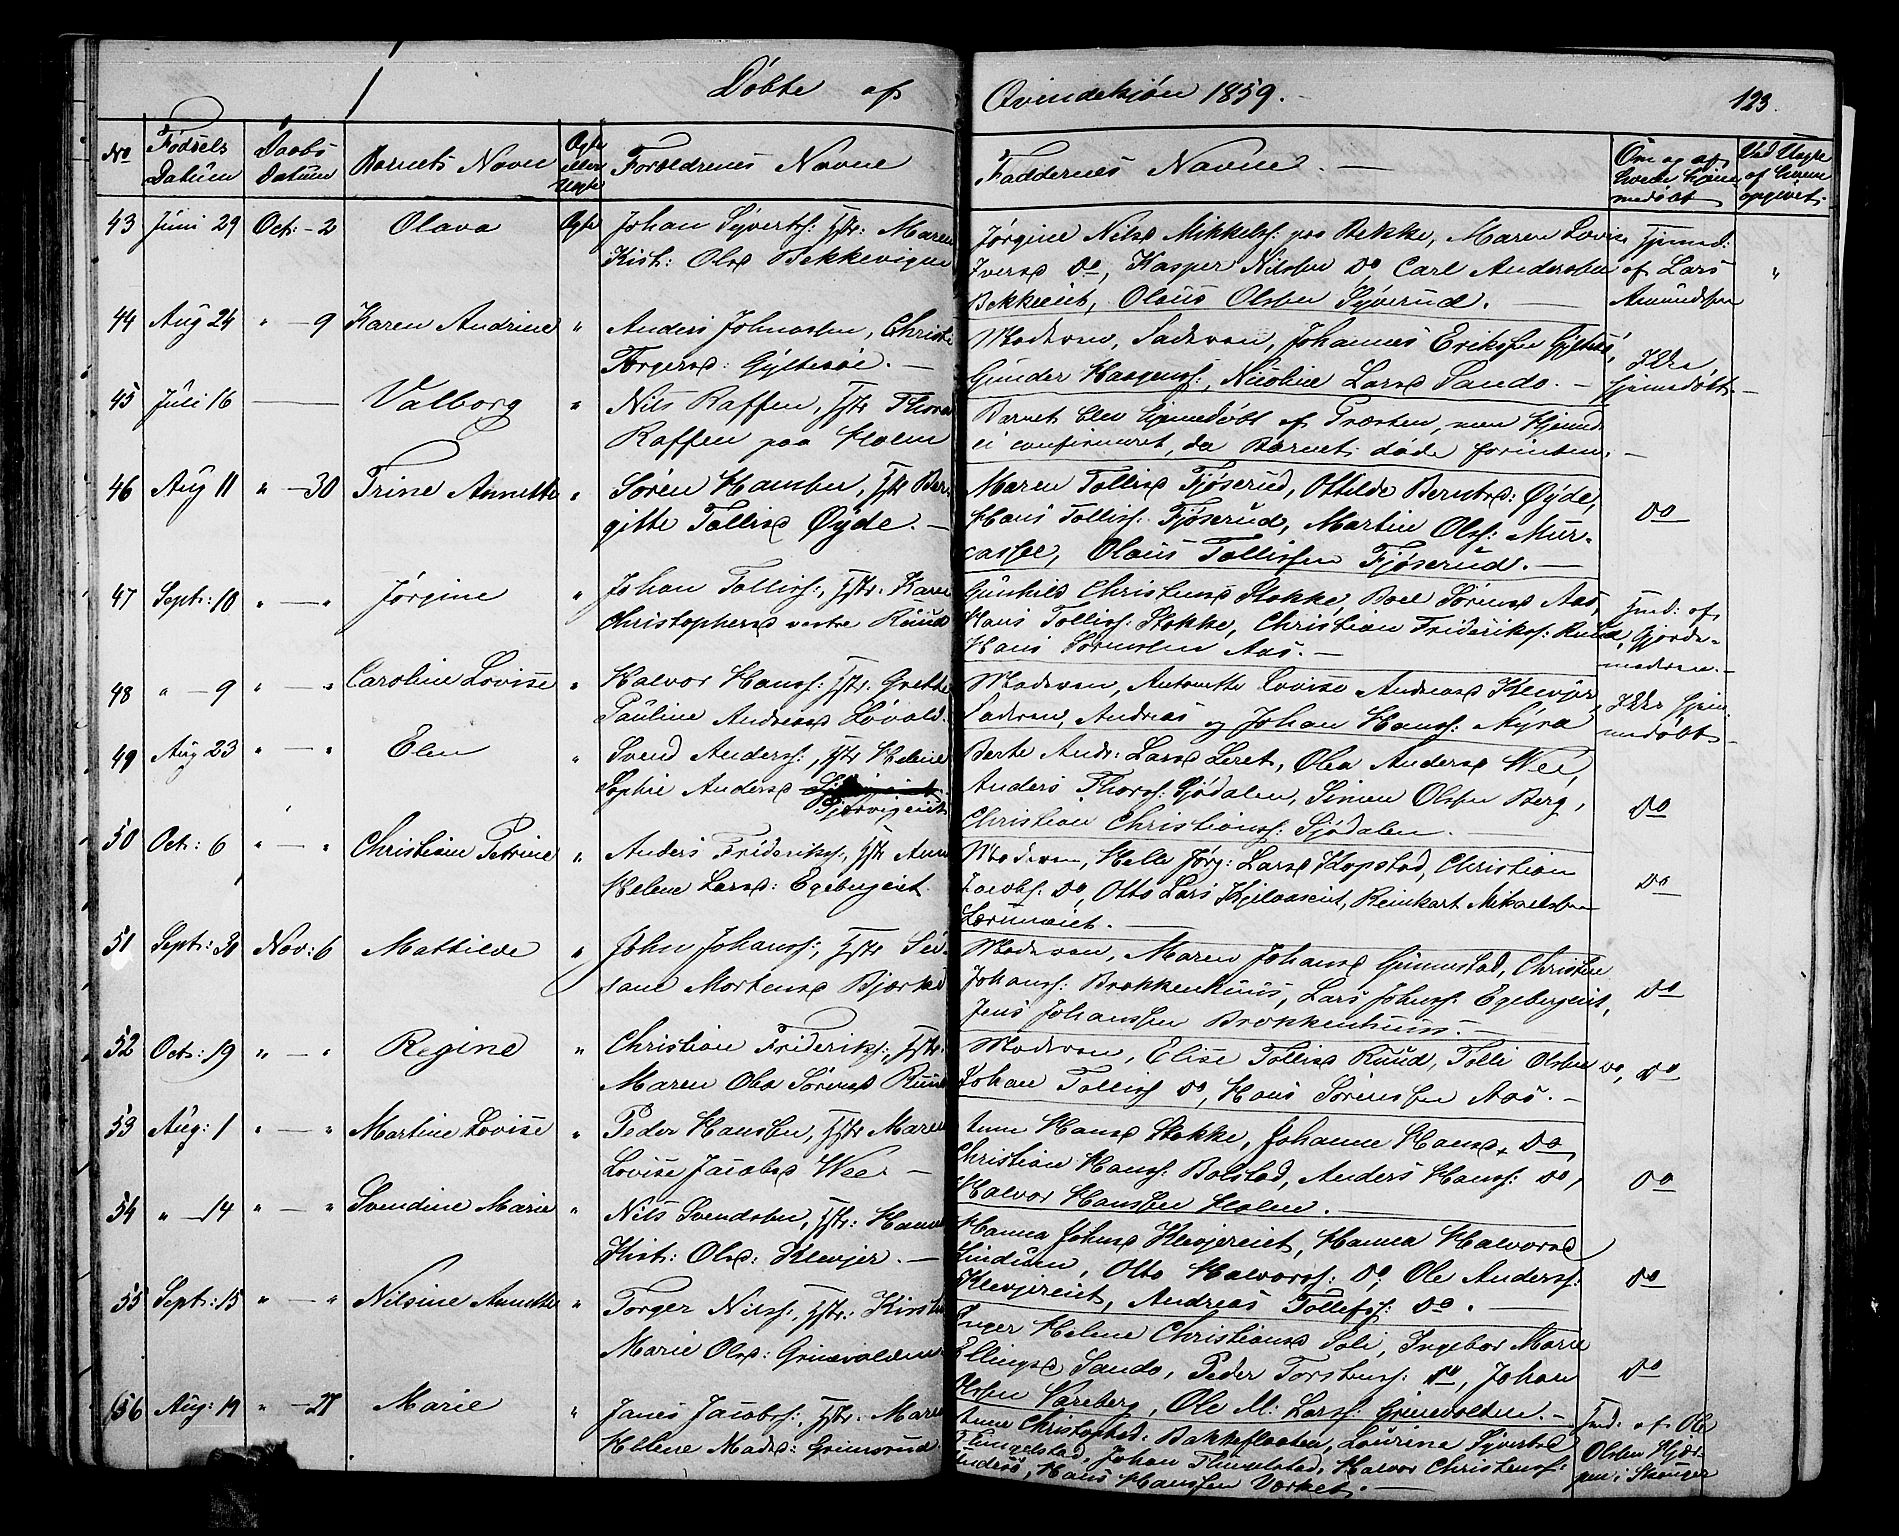 Døbte af Qvindekjøn 1859.
123.
No
Fødsels Datum
Daabs Datum
Barnets Navn
Ægte eller Uægte
Forældrenes Navne
Faddernes Navne. —
Om og af hvem hjemmedøbt
Ved Uægte af hvem opgivet.
43 Juni 29 Oct: — 2 Olava Ægte Johan Syverts: Hstr: Maren
Kist: Olsd Bekkevigen
Jørgine Nilsd Mikkelss: paa Bekke, Maren Lovise
Iversd Do, Kasper Nilsen Do, Carl Andersen
Bekkeeiet, Olaus Olsen Syverud. —
Hjmd: af Lars Amundsen
"
44 Aug 24 " — 9 Karen Andrine " Anders Johnassen, Christi
Torgersd: Gyltesøe. —
Moderen, Faderen, Johannes Eriksen
Gunder Haagenss:, Nicoline Larsd Sando. —
Ikke hjemmedøbt. —
45 Juli 16 — Valborg " Nils Raffen, Hstr Thora
Raffen paa Holm
Barnet blev hjemmedøbt af Præsten, men Hjemd:
ei confirmeret, da Barnet døde forinden. —
46 Aug 11 " — 30 Trine Annette " Søren Hansen, Hstr Ber-
gitte Tollisd Øyde. —
Maren Tollisd Fjøserud, Ottilde Berntsd: Øyde,
Hans Tolliss: Fjøserud, Martin Olss: Mur-
casse, Olaus Tollissen Fjøserud. —
Do
47 Sept: 10 " — " Jørgine " Johan Tolliss:, Hstr: Karen
Christophersd vestre Ruud
Gunhild Christensd Stokke, Boel Sørensd Aas,
Hans Tolliss: Stokke, Christian Frideriks: Ruud,
Hans Sørensen Aas. —
Hmd: af Gjordemoderen. —
48 " — 9 " — " Caroline Lovise " Halvor Hanss: Hstr: Grethe
Pauline Andreasd Løvald.
Moderen, Antonette Lovise Andreasd Klevjer,
Faderen, Andreas og Johan Hanss: Nyrø
Ikke hjemmedøbt —
49 Aug 23 " — " Elen " Svend Anderss:, Hstr Helene
Sophie Andersd
Berte Andr: Larsd Leret, Olea Andersd Wee,
Anders Thorss: Sjødalen, Simen Olsen Berg,
Christian Christianss: Sjødalen. —
Do
50 Oct: 6 " — " Christine Petrine " Anders Frideriks:, Hstr Anne
Helene Larsd: Egebergeiet.
Moderen, Helle Jørg: Larsd Klopstad, Christian
Jacobs: Do, Otto Lars Kjelaaseiet, Reinhart Mikaelsen
Lerumeiet. —
Do
51 Sept: 30 Nov: 6 Mathilde " John Johanss:, Hstr Su-
sane Mortensd Bjerke
Moderen, Maren Johansd Gunnestad, Christen
Johanss: Brokkenhuus, Lars Johnss: Egebergeiet,
Jens Johanssen Brokkenhuus. —
Do
52 Oct: 19 " — " Regine " Christian Frideriks:, Hstr:
Maren Olea Sørensd Ruud
Moderen, Elise Tollisd Ruud, Tolli Olsen Do,
Johan Tolliss Do, Hans Sørensen Aas. —
Do
53 Aug: 1 " — " Martine Lovise " Peder Hanssen, Hstr Maren
Lovise Jacobsd Wee —
Anne Hansd Stokke, Johanne Hansd Do,
Christian Hanss: Bolstad, Anders Hanss: Do,
Halvor Hanssen Holm. —
Do
54 " — 14 " — " Svendine Marie " Nils Svendsen, Hstr: Hanna
Kist: Olsd: Klevjer. —
Hanna Johnsd Klevjereiet, Hanna Halvorsd
Lindum, Otto Halvorss: Do, Ole Anderss:
Klevjereiet, Andreas Tollefss: Do. —
Do
55 Sept: 15 " — " Nilsine Annette " Torger Nilss:, Hstr: Kirsten
Marie Olsd: Grinevolden
Inger Helene Christiansd Soli, Ingebor Marie
Ellingsd Sando, Peder Torstenss: Do, Johan
Olsen Vareberg, Ole M: Larss: Grinevolden. —
Do
56 Aug: 19 " — 27 Marie " Janes Jacobss:, Hstr: Maren
Helene Madsd: Grimsrud
Anne Christophsd: Bakkefloeten, Laurine Syvertsd
Tingelstad, Johan Tingelstad, Halvor Christenss:
Hans Hanssen Værket. —
Hmd: af Ole
Olsen
i Stranger